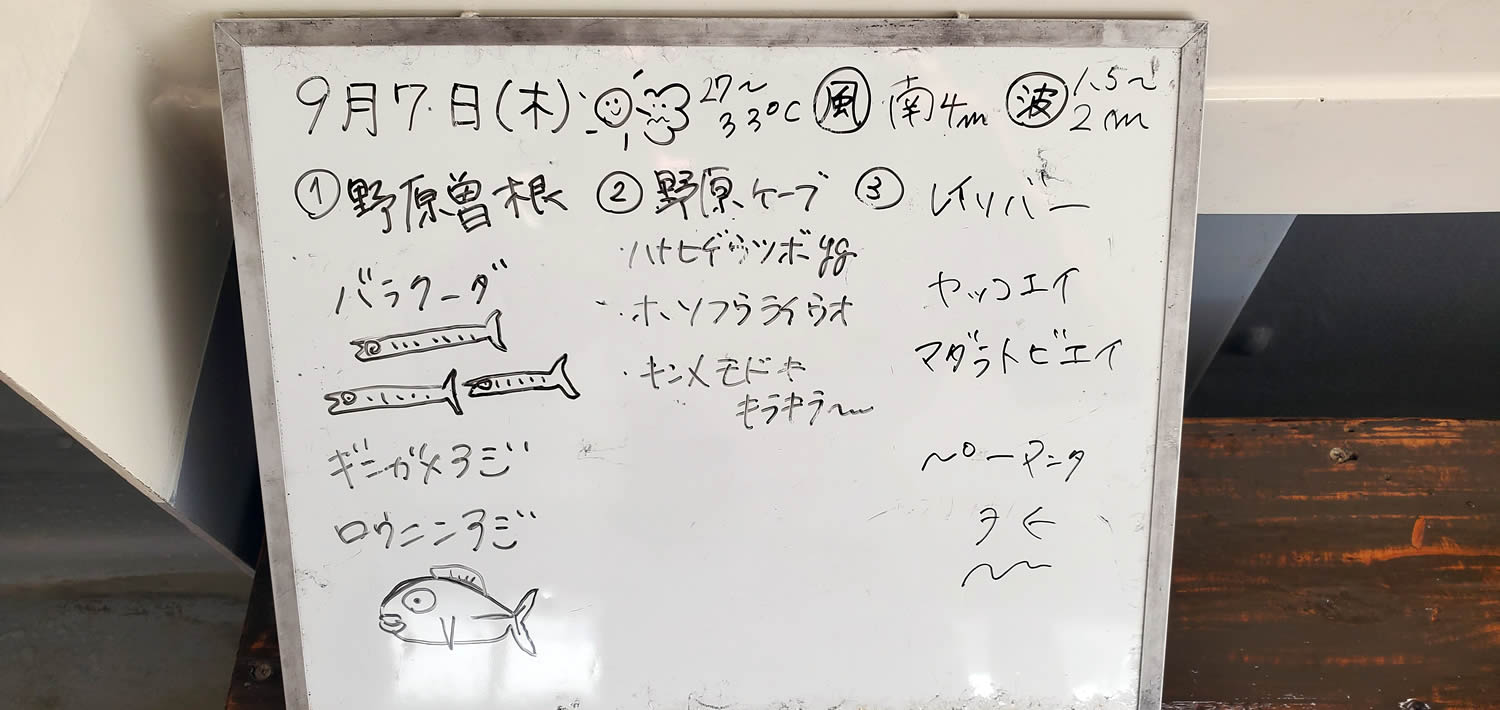 9月7日(木) 27〜33℃ 風 南4m 波 1.5〜2m
①野原曽根
バラクーダ
ギンガメアジ
ロウニンアジ
②野原ケーブ
・ハナヒゲウツボyg
・ホソフウライウオ
・キンメモドキ
キラキラ〜
③
ヤッコエイ
マダラトビエイ